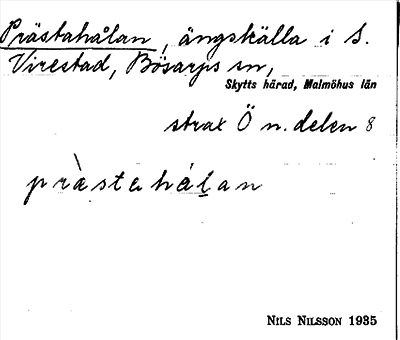 Prästahålan, ängskälla i S.
Virestad, Bösarps sn,
Skytts härad, Malmöhus län
strax Ö n. delen 8
pràstahálan
NILS NILSSON 1935